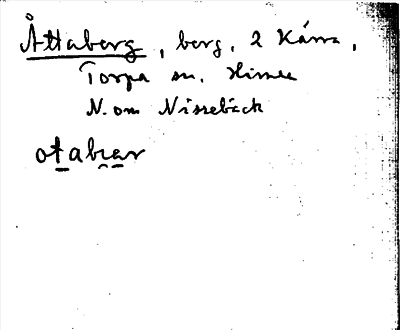 Åttaberg, berg, 2 Kärra,
Torpa sn. Himle
N. om Nissebäck
otabrar